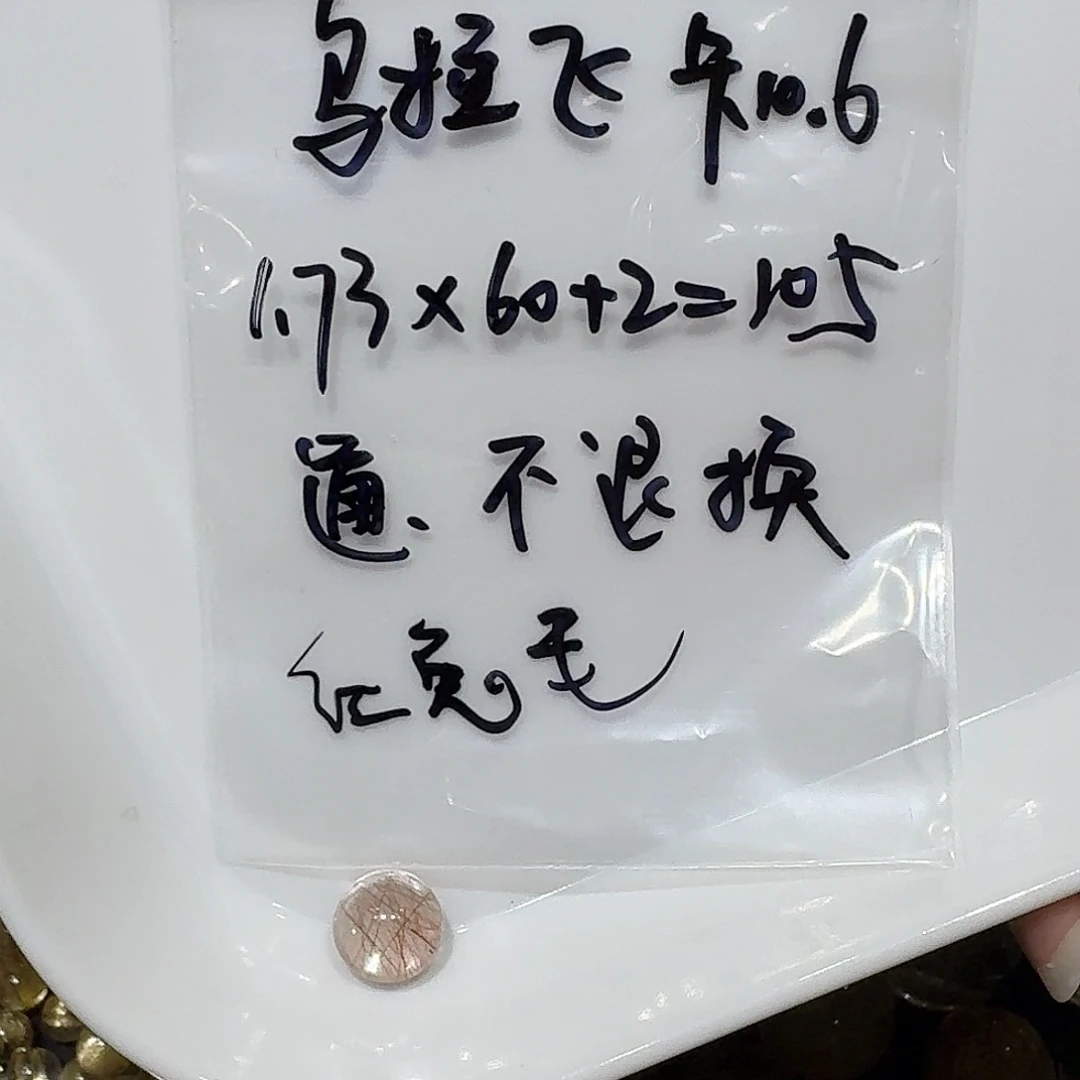 乌拉飞 卡10.6
1.73×60+2=105
通、不退换
红兔毛